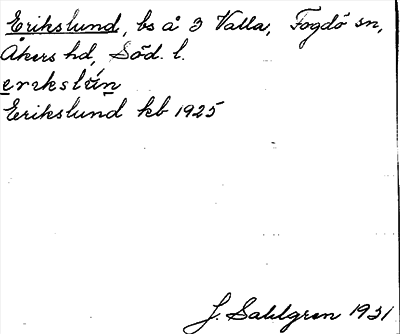 Erikslund, bs å 3 Valla, Fogdö sn,
Åkers hd, Söd. l.
Erikslund kb 1925
J. Sahlgren 1931